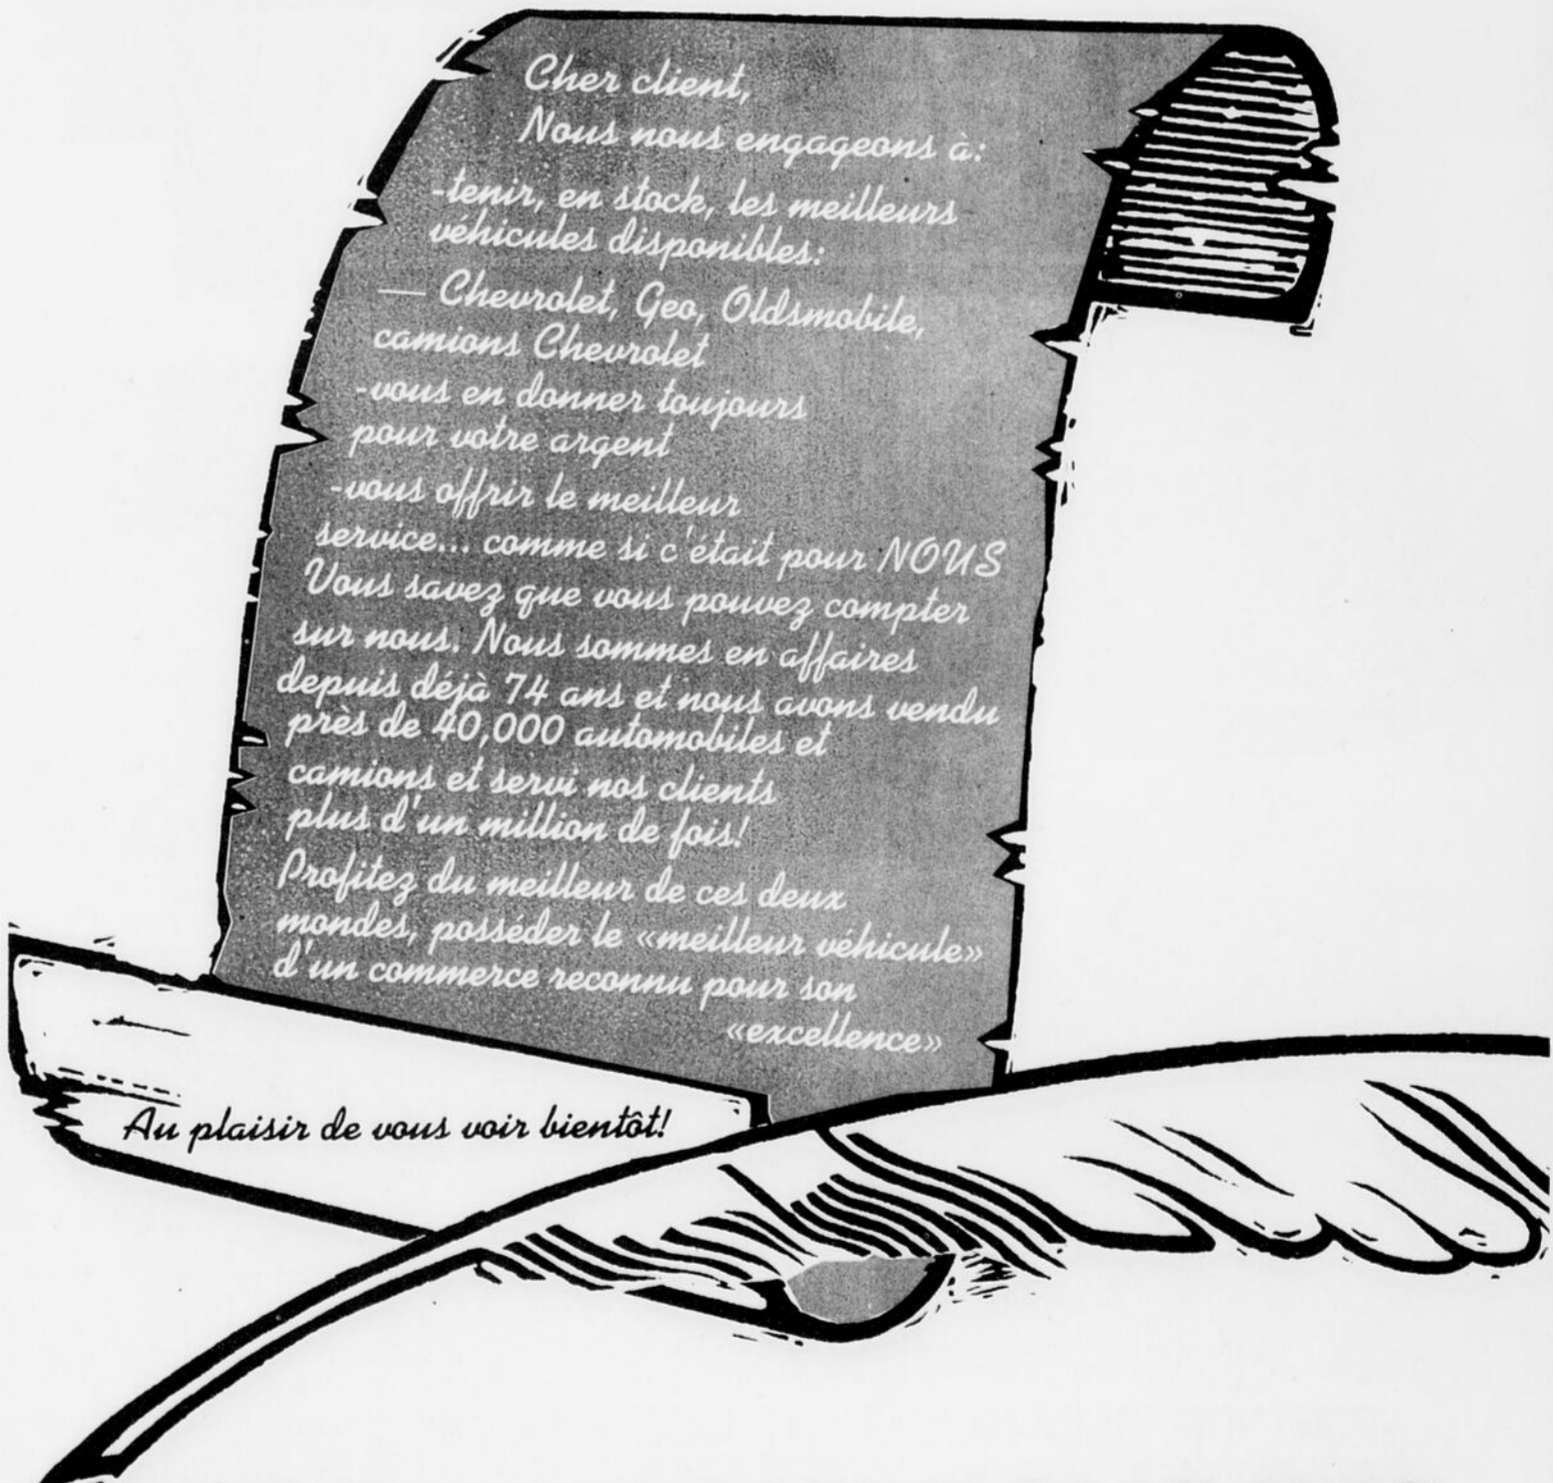 Cher client,
Nous nous engageons à:
-tenir, en stock, les meilleurs
véhicules disponibles:
— Chevrolet, Geo, Oldsmobile,
camions Chevrolet
-vous en donner toujours
pour votre argent
-vous offrir le meilleur
service... comme si c'était pour NOUS
Vous savez que vous pouvez compter
sur nous. Nous sommes en affaires
depuis déjà 74 ans et nous avons vendu
près de 40,000 automobiles et
camions et servi nos clients
plus d'un million de fois!
Profitez du meilleur de ces deux
mondes, posséder le «meilleur véhicule»
d'un commerce reconnu pour son
«excellence»
Au plaisir de vous voir bientôt!